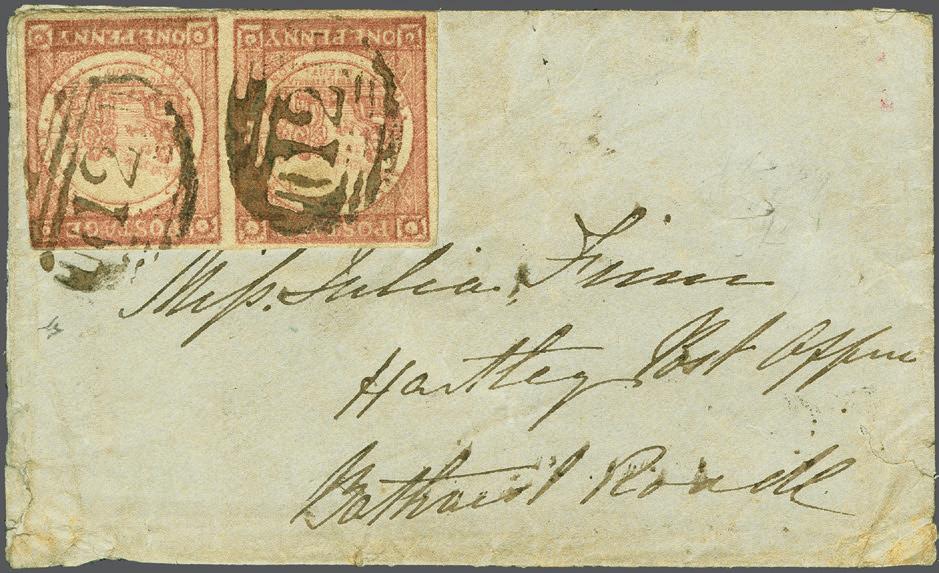 ONE PENNY ONE PENNY
POSTAGE POSTAGE
12 12
Miss. Julia. Finn
Hartley Post Office
Bathurst Road